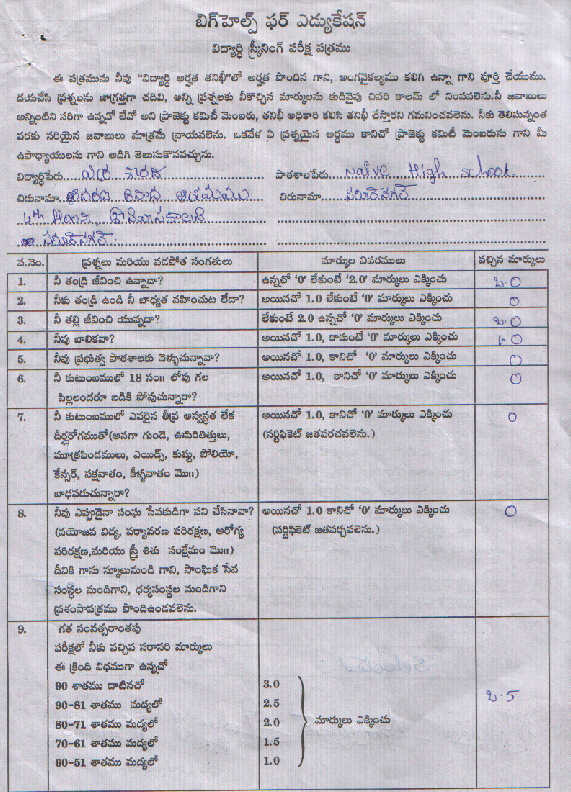 బిగ్‌హెల్ప్ ఫర్ ఎడ్యుకేషన్
విద్యార్థి స్క్రీనింగ్ పరీక్ష పత్రము
ఈ పత్రమును నీవు "విద్యార్థి అర్హత తనిఖీ"లో అర్హత పొందిన గాని, అంగవైకల్యము కలిగి ఉన్నా గాని పూర్తి చేయుము.
దయచేసి ప్రశ్నలను జాగ్రత్తగా చదివి, అన్ని ప్రశ్నలకు నీకొచ్చిన మార్కులను కుడివైపు చివరి కాలమ్ లో నింపవలెను.నీ జవాబులు
అన్నింటిని సరిగా ఉన్నవో లేవో అని ప్రాజెక్టు కమిటీ మెంబరు, తనిఖీ అధికారి కలిసి తనిఖీ చేస్తారని గమనించవలెను. నీకు తెలిసినంత
వరకు సరియైన జవాబులు మాత్రమే వ్రాయవలెను. ఒకవేళ ఏ ప్రశ్నయైన అర్థము కానిచో ప్రాజెక్టు కమిటీ మెంబరును గాని మీ
ఉపాధ్యాయులను గాని అడిగి తెలుసుకొనవచ్చును.
విద్యార్థిపేరు పాఠశాలపేరు Native High school
చిరునామా చిరునామా
వ.నెం. ప్రశ్నలు మరియు వడపోత సంగతులు మార్కుల వివరములు వచ్చిన మార్కులు
1. నీ తండ్రి జీవించి ఉన్నాడా? ఉన్నచో '0' లేకుంటే '2.0' మార్కులు ఎక్కించు 2.0
2. నీకు తండ్రి ఉండి నీ బాధ్యత వహించుట లేదా? అయినచో 1.0 లేకుంటే '0' మార్కులు ఎక్కించు 0
3. నీ తల్లి జీవించి యున్నదా? లేకుంటే 2.0 ఉన్నచో '0' మార్కులు ఎక్కించు 2.0
4. నీవు బాలికవా? అయినచో 1.0, కాకుంటే '0' మార్కులు ఎక్కించు 1.0
5. నీవు ప్రభుత్వ పాఠశాలకు వెళ్ళుచున్నావా? అయినచో 1.0, కానిచో '0' మార్కులు ఎక్కించు 0
6. నీ కుటుంబములో 18 సం॥ లోపు గల అయినచో 1.0, కానిచో '0' మార్కులు ఎక్కించు 0
పిల్లలందరూ బడికి పోవుచున్నారా?
7. నీ కుటుంబములో ఎవరైన తీవ్ర అస్వస్థత లేక అయినచో 1.0, కానిచో '0' మార్కులు ఎక్కించు 0
దీర్ఘరోగముతో(అనగా గుండె, ఊపిరితిత్తులు, (సర్టిఫికెట్ జతపరచవలెను.)
మూత్రపిండములు, ఎయిడ్స్, కుష్ఠు, పోలియో,
కేన్సర్, పక్షవాతం, కీళ్ళవాతం మొ॥)
బాధపడుచున్నారా?
8. నీవు ఎప్పుడైనా సంఘ సేవకుడిగా పని చేసినావా? అయినచో 1.0 కానిచో '0' మార్కులు ఎక్కించు 0
(వయోజన విద్య, పర్యావరణ పరిరక్షణ, ఆరోగ్య (సర్టిఫికెట్ జతపర్చవలెను.)
పరిరక్షణ,మరియు స్త్రీ శిశు సంక్షేమం మొ॥)
దీనికి గాను స్కూలునుండి గాని, సాంఘిక సేవ
సంస్థల నుండిగాని, ధర్మసంస్థల నుండిగాని
ప్రశంసాపత్రము పొందిఉండవలెను.
9. గత సంవత్సరాంతపు
పరీక్షలో నీకు వచ్చిన సరాసరి మార్కులు
ఈ క్రింది విధముగా ఉన్నచో
90 శాతము దాటినచో 3.0
90-81 శాతము మధ్యలో 2.5 2.5
80-71 శాతము మధ్యలో 2.0 మార్కులు ఎక్కించు
70-61 శాతము మధ్యలో 1.5
60-51 శాతము మధ్యలో 1.0